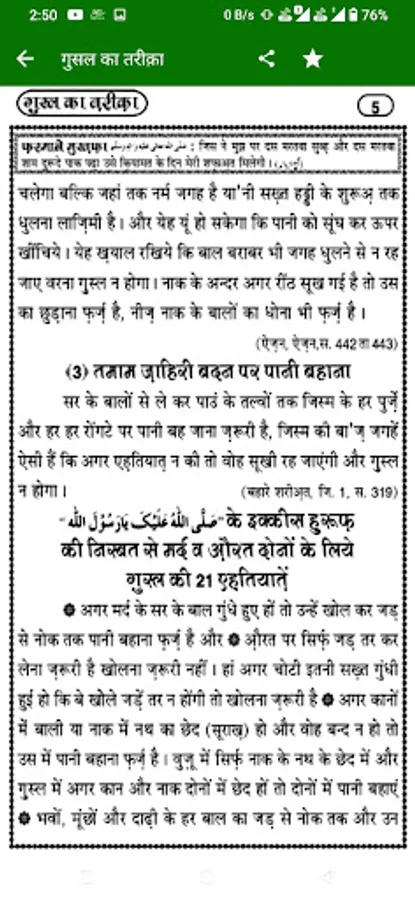 2:50
0 B/s
76%
गुसल का तरीक़ा
गुस्ल का तरीक़ा
5
फ़रमाने मुस्तफ़ा صلى الله عليه وسلم : जिस ने मुझ पर दस मरतबा सुब्ह और दस मरतबा
शाम दुरूदे पाक पढ़ा उसे क़ियामत के दिन मेरी शफ़ाअत मिलेगी ।
चलेगा बल्कि जहां तक नर्म जगह है या'नी सख़्त हड्डी के शुरूअ़ तक
धुलना लाज़िमी है । और येह यूं हो सकेगा कि पानी को सूंघ कर ऊपर
खींचिये । येह ख़याल रखिये कि बाल बराबर भी जगह धुलने से न रह
जाए वरना ग़ुस्ल न होगा । नाक के अन्दर अगर रींठ सूख गई है तो उस
का छुड़ाना फ़र्ज़ है, नीज़ नाक के बालों का धोना भी फ़र्ज़ है ।
(ऐज़न, ऐज़न,स. 442 ता 443)
(3) तमाम ज़ाहिरी बदन पर पानी बहाना
सर के बालों से ले कर पाउं के तल्वों तक जिस्म के हर पुर्ज़े
और हर हर रोंगटे पर पानी बह जाना ज़रूरी है, जिस्म की बा'ज़ जगहें
ऐसी हैं कि अगर एहतियात़ न की तो वोह सूखी रह जाएंगी और ग़ुस्ल
न होगा ।
(बहारे शरीअ़त, जि. 1, स. 319)
"صَلَّى اللهُ عَلَيْكَ يَا رَسُوْلَ الله" के इक्कीस हुरूफ़
की निस्बत से मर्द व औरत दोनों के लिये
ग़ुस्ल की 21 एहतियातें
❁ अगर मर्द के सर के बाल गुंधे हुए हों तो उन्हें खोल कर जड़
से नोक तक पानी बहाना फ़र्ज़ है और ❁ औरत पर सिर्फ़ जड़ तर कर
लेना ज़रूरी है खोलना ज़रूरी नहीं । हां अगर चोटी इतनी सख़्त गुंधी
हुई हो कि बे खोले जड़ें तर न होंगी तो खोलना ज़रूरी है ❁ अगर कानों
में बाली या नाक में नथ का छेद (सूराख़) हो और वोह बन्द न हो तो
उस में पानी बहाना फ़र्ज़ है । वुज़ू में सिर्फ़ नाक के नथ के छेद में और
ग़ुस्ल में अगर कान और नाक दोनों में छेद हों तो दोनों में पानी बहाएं
❁ भवों, मूंछों और दाढ़ी के हर बाल का जड़ से नोक तक और उन